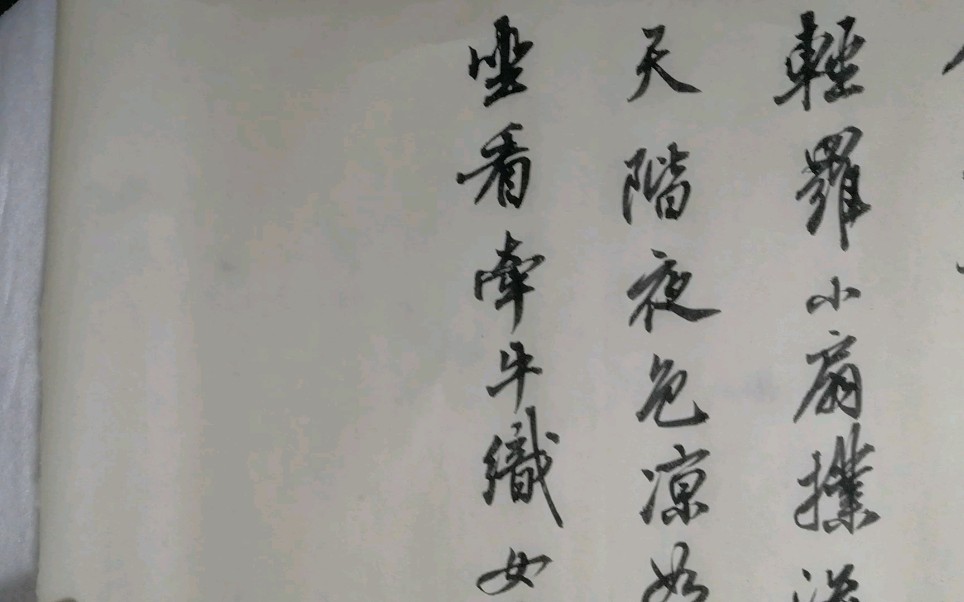 輕羅小扇撲
天階夜色涼如
坐看牽牛織女